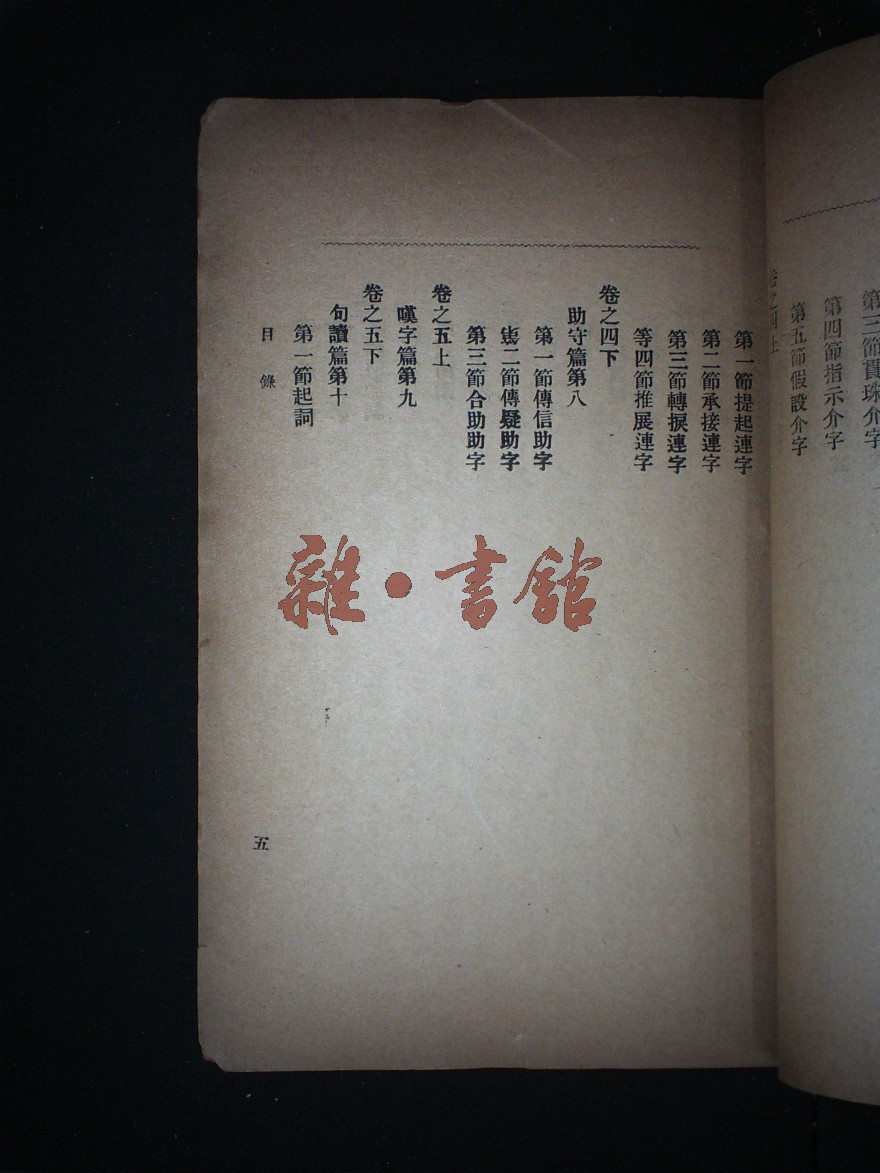 第三節貫珠介字
第四節指示介字
第五節假設介字
卷之四上
第一節提起連字
第二節承接連字
第三節轉捩連字
等四節推展連字
卷之四下
助守篇第八
第一節傳信助字
第二節傳疑助字
第三節合助助字
卷之五上
嘆字篇第九
卷之五下
句讀篇第十
第一節起詞
目錄
五
雜•書館